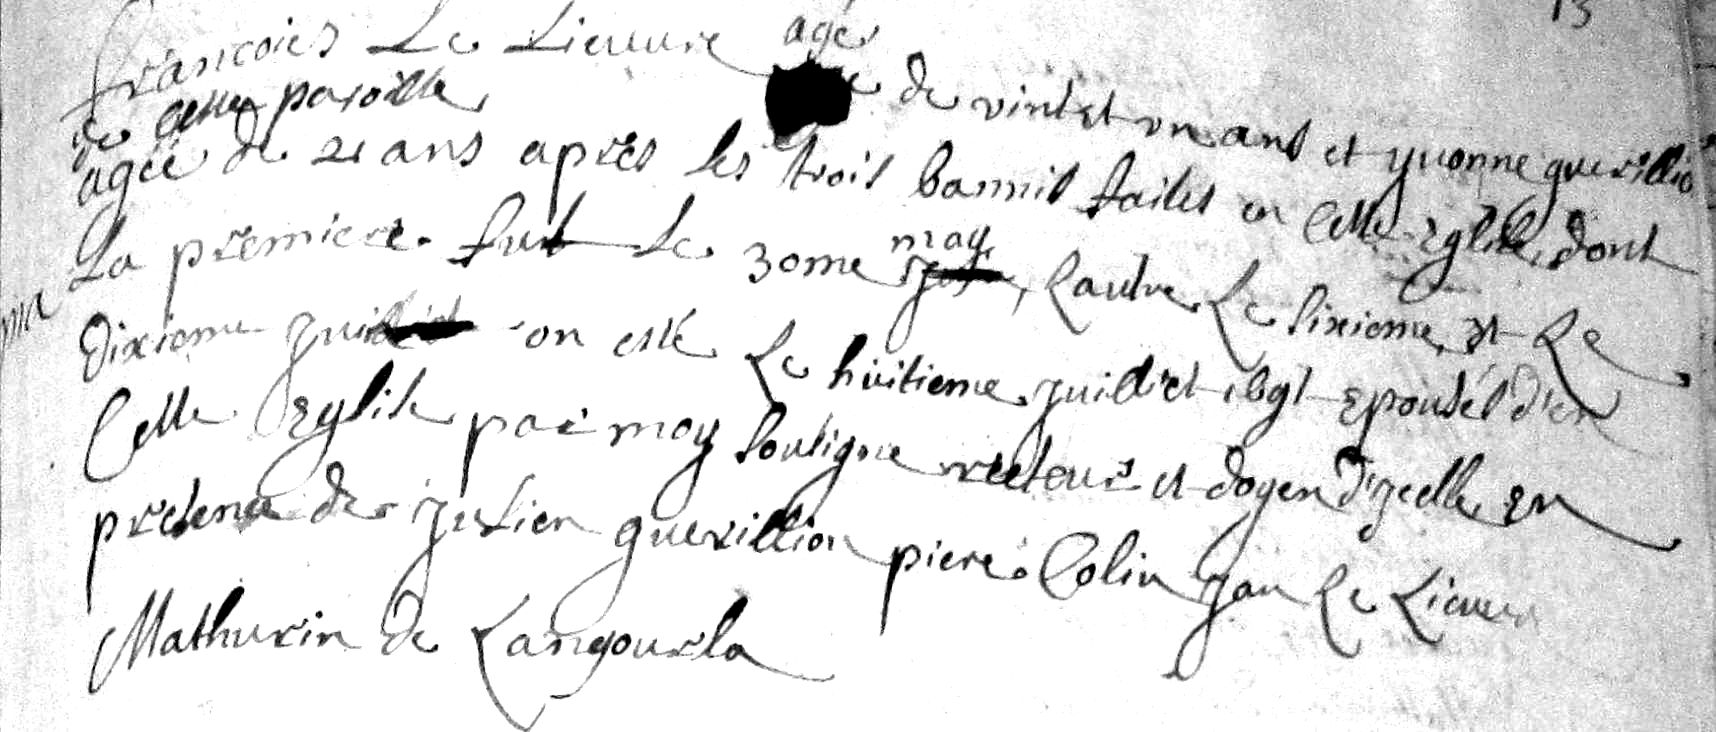 13
francoies Le Lieuure agé de vintet vn ans et yuonne guerillio
de cette paroisse
agée de 21 ans apres les trois bannis faites en cette Eglise, dont
La premiere fut Le 30me may, Lautre Le sixieme et Le
dixieme on esté Le huitieme juillet ils epousés d'en
Cette Eglise par moy sousigne recteur et doyen d'jcelle en
presence de julien guerillion piere Colin jan Le Lieuure
Mathurin de Langourla